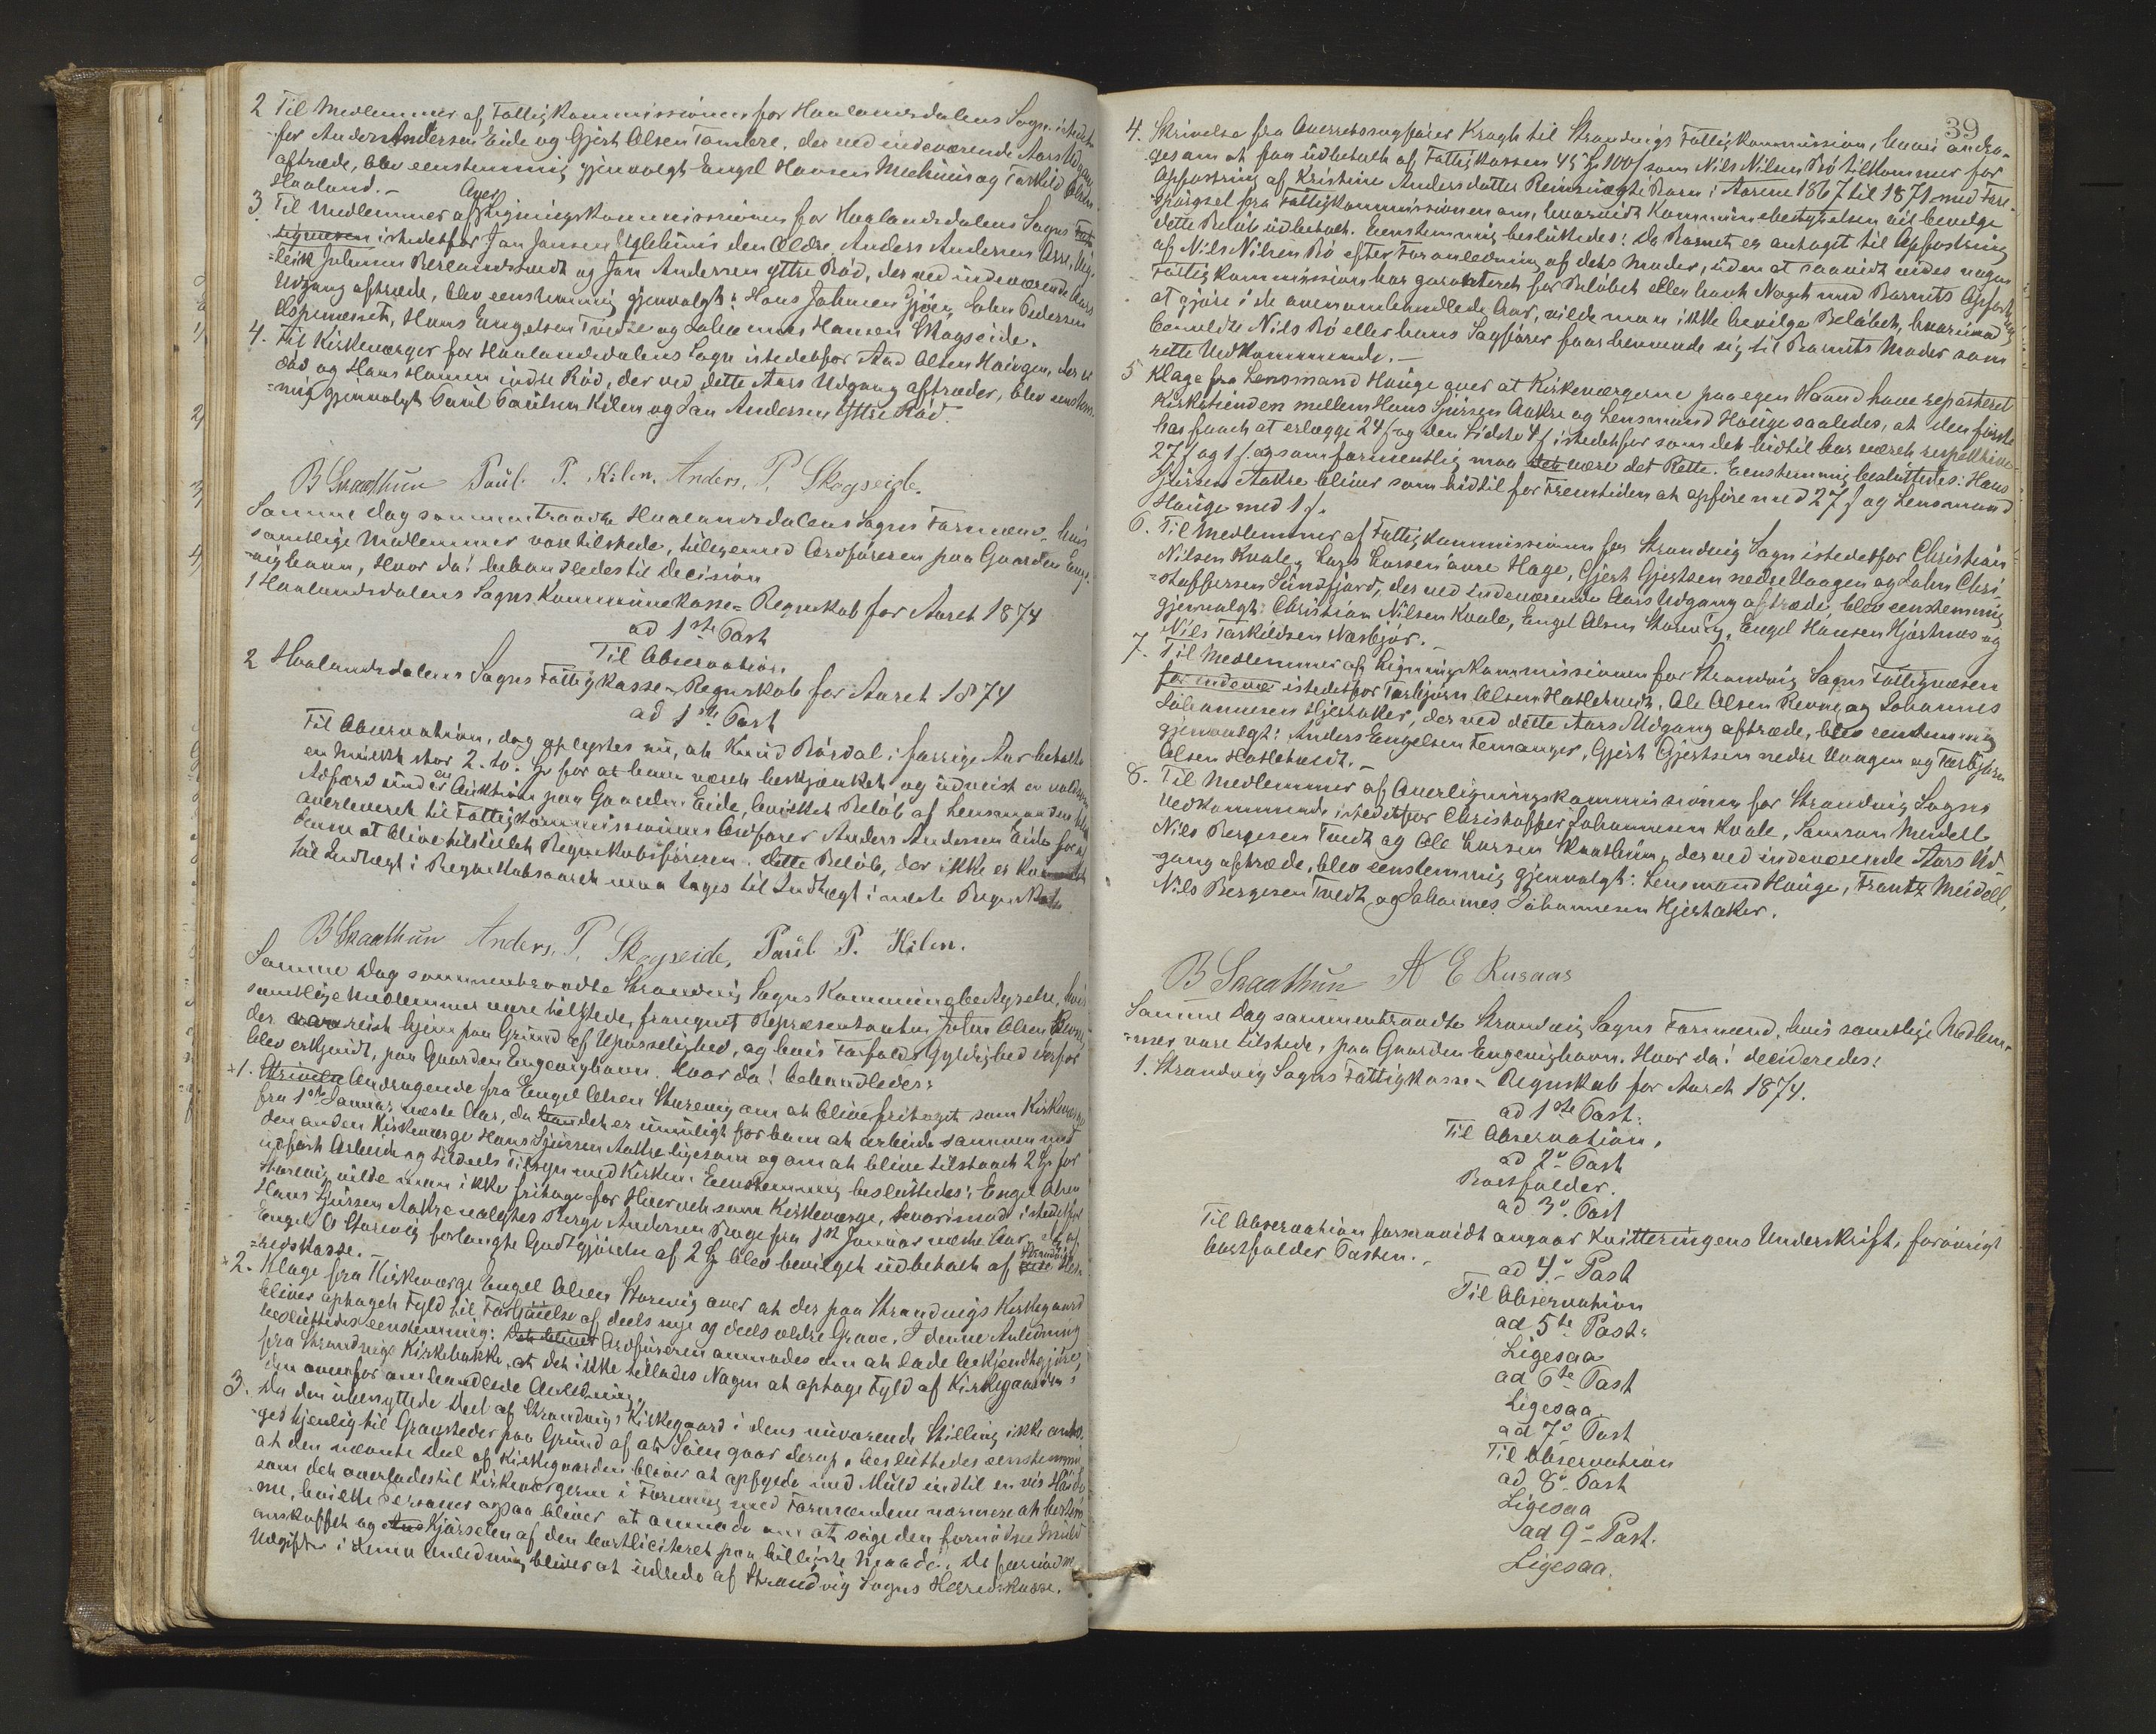 2 Til Medlemmer af Fattigkommissionen for Haalandsdalens Sogn istedet-
for Anders Andersen Eide og Gjert Olsen Tombre, der ved indeværende Aars Udgang
aftræde, blev eenstemmig gjenvalgt Engel Hansen Mehuus og Torkild Olsen
Haaland.-
3. Til Medlemmer af Over Ligningskommissionen for Haalandsdalens Sogns
istedetfor Jan Jansen Eglehuus den Ældre, Anders Andersen
Johannes Berlandstvedt og Jan Andersen ytre Rød, der ved indeværende Aars
Udgang aftræde, blev eenstemmig gjenvalgt: Hans Johnsen Gjøn, John Pedersen
Espenæsset, Hans Engelsen Tvedte og Johannes Hansen Skogseide.
4. Til Kirkeværger for Haalandsdalens Sogn istedetfor Aad Olsen Haugen, der er
død og Hans Hansen indre Rød, der ved dette Aars Udgang aftræder, blev eenstem-
mig gjenvalgt Paul Paulsen Kilen og Jan Andersen Yttre Rød.
B Skaathun Paul P. Kilen. Anders. P. Skogseide.
Samme dag sammentraadte Haalandsdalens Sogns Formænd, hvis
samtlige Medlemmer vare tilstede, tilligemed Ordføreren paa Gaarden Enge-
vighavn, Hvor da! behandledes til Decision
1 Haalandsdalens Sogns Kommunekasse-Regnskab for Aaret 1874
ad 1ste Post
Til Observation.
2 Haalandsdalens Sogns Fattigkasse-Regnskab for Aaret 1874
ad 1ste Post
Til Observation, dog oplystes nu, at Knud Rørdal i forrige Aar betalte
en Mulkt stor 2. to. Spd for at have været beskjænket og udviist en voldsom
Adfærd under en Auktion paa Gaarden Eide, hvilket Beløb af Lensmanden
overleveret til Fattigkommissionens Ordfører Anders Andersen Eide for af
denne at blive tilstillet Regnskabsføreren. dette Beløb, der ikke er kommet
til Indtægt i Regnskabsaaret maa tages til Indtægt i næste Regnskab
B Skaathun Anders. P. Skogseide, Paul P. Kilen.
Samme Dag sammentraadte Strandvig Sogns Kommunebestyrelse, hvis
samtlige Medlemmer vare tilstede, fraregnet Repræsentanten John Olsen Revne,
der var reist hjem paa Grund af Upasselighed, og hvis Forfalds Gyldighed derfor
blev erkjendt, paa Gaarden Engevighavn. Hvor da! behandledes:
1. Skrivelse Andragende fra Engel Olsen Storevig om at blive fritaget som Kirkeværge
fra 1ste Januar næste Aar, da det er umuligt for ham at arbeide sammen med
den anden Kirkeværge Hans Sjursen Aakre ligesom og om at blive tilstaaet 2 Spd for
udført Arbeide og tildeels Tilsyn med Kirken. Eenstemmig besluttedes: Engel Olsen
Storevig vilde man ikke fritage for Hvervet som Kirkeværge, hvorimod istedetfor
Hans Sjursen Aakre valgtes Berge Andersen Drage fra 1ste Januar næste Aar. af
Engel O Storevig forlangte Godtgjørelse af 2 Spd blev bevilget udbetalt af Strandvigs Her-
redskasse.-
2. Klage fra Kirkeværge Engel Olsen Storevig over at der paa Strandvigs Kirkegaard
bliver optaget Fyld til Forhøielse af deels nye og deels ældre Grave. I denne Anledning
besluttedes eenstemmig: Ordføreren anmodes om at lade bekjendtgjøre
fra Strandvigs Kirkebakke, at det ikke tillades Nogen at optage Fyld af Kirkegaarden i
den ovenfor omhandlede Anledning.
3. Da den ubenyttede Deel af Strandvigs Kirkegaard i dens nuværende Stilling ikke anta-
ges tjenlig til Gravsteder paa Grund af at Søen gaar derop, besluttedes eenstemmig
at den nævnte Deel af Kirkegaarden bliver at opfylde med Muld indtil en vis Høide
som det overlades til Kirkeværgerne i Forening med Formændene nærmere at bestem-
me, hvilke Personer ogsaa bliver at anmode om at søge den fornødne Muld
anskaffet og Kjørselen af den bortliciteret paa billigste Maade. De fornødne
Udgifter i denne Anledning bliver at udrede af Strandvig Sogns Herredskasse.
39
4. Skrivelse fra Overretssagfører Kragh til Strandvigs Fattigkommission, hvori andra-
ges om at faa udbetalt af Fattigkassen 45 Spd 100 s som Nils Nilsen Bø tilkommer for
Opfostring af Kristine Andersdatter Barn i Aarene 1867 til 1871 med Fore-
spørgsel fra Fattigkommissionen om, hvorvidt Kommunebestyrelsen vil bevilge
dette Beløb udbetalt. Eenstemmig besluttedes: Da Barnet er antaget til Opfostring
af Nils Nilsen Bø efter Foranledning af dets Moder, uden at saavidt vides nogen
Fattigkommission har garanteret for Beløbet eller havt Noget med Barnets Opfostring
at gjøre i de ovenomhandlede Aar, vilde man ikke bevilge Beløbet, hvorimod
bemeldte Nils Bø eller hans Sagfører faar henvende sig til Barnets Moder som
rette Vedkommende.-
5 Klage fra Lensmand Hauge over at Kirkeværgerne paa egen Haand have reparteret
Kirketienden mellem Hans Sjursen Aakre og Lensmand Hauge saaledes, at den første
har faaet at erlægge 24 s og den Sidste 4 s istedetfor som det hidtil har været respektive
27 s og 1 s. og som formentlig maa være det Rette. Eenstemmig besluttedes: Hans
Sjursen Aakre bliver som hidtil for Fremtiden at opføre med 27 s og Lensmand
Hauge med 1 s.
6. Til Medlemmer af Fattigkommissionen for Strandvig Sogn istedetfor Christian
Nilsen Kvale, Lars Larsen øvre Hage, Gjert Gjertsen nedre Vaagen og John Chri-
stoffersen Sundfjord, der ved indeværende Aars Udgang aftræde, blev eenstemmig
gjenvalgt: Christian Nilsen Kvale, Engel Olsen Storevig, Engel Hansen Hjartnes og
Nils Torkildsen Næsbjør.-
7. Til Medlemmer af Ligningskommissionen for Strandvig Sogns Fattigvæsen
for indevæ istedetfor Torbjørn Olsen Hatletvedt, Ole Olsen Revne og Johannes
Johannesen Hjertaker, der ved dette Aars Udgang aftræde, blev eenstemmig
gjenvalgt: Anders Engelsen Femanger, Gjert Gjertsen nedre Vaagen og Torbjørn
Olsen Hatletvedt.-
8. Til Medlemmer af Overligningskommissionen for Strandvig Sogns
Vedkommende istedetfor Christoffer Johannesen Kvale, Samson Meidell
Nils Bergesen Tvedt og Ole Larsen Skaathun, der ved indeværende Aars Ud-
gang aftræde, blev eenstemmig gjenvalgt: Lensmand Hauge, Frantz Meidell,
Nils Bergesen Tvedt og Johannes Johannesen Hjertaker.
B Skaathun A E Kusaas
Samme dag sammentraadte Strandvig Sogns Formænd, hvis samtlige Medlem-
mer vare tilstede, paa Gaarden Engevighavn. Hvor da! decideredes:
1. Strandvig Sogns Fattigkasse-Regnskab for Aaret 1874.
ad 1ste Post:
Til Observation.
ad 2- Post
Bortfalder.
ad 3- Post
Til Observation forsaavidt angaar Kvitteringens Underskrift, forøvrigt
bortfalder Posten.-
ad 4- Post
Til Observation
ad 5te Post:
Ligesaa
ad 6te Post
Ligesaa.
ad 7- Post
Til Observation
ad 8- Post
Ligesaa
ad 9- Post.
Ligesaa.